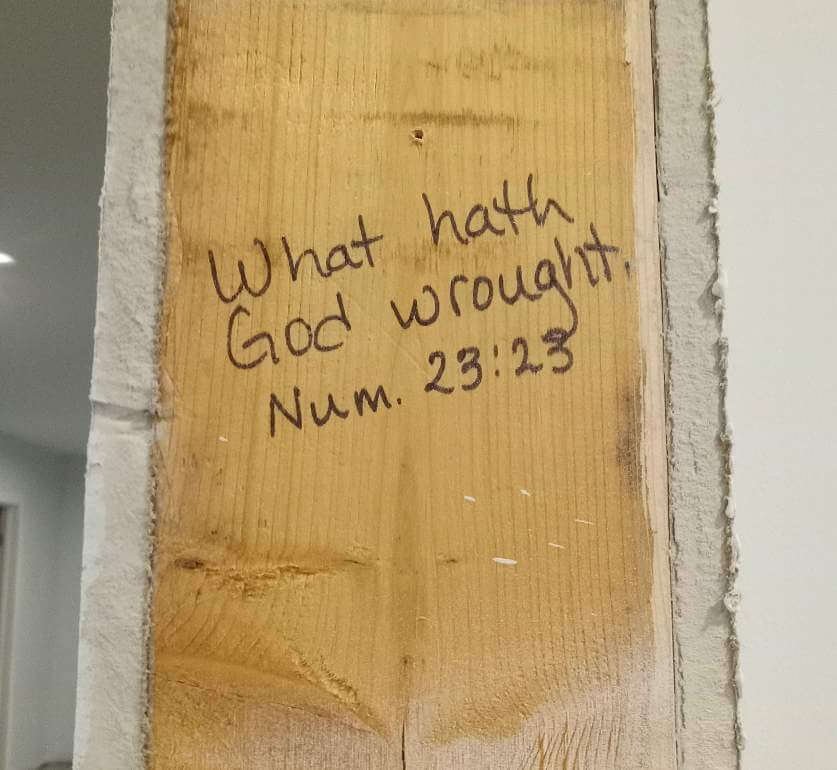 What hath
God wrought.
Num. 23:23